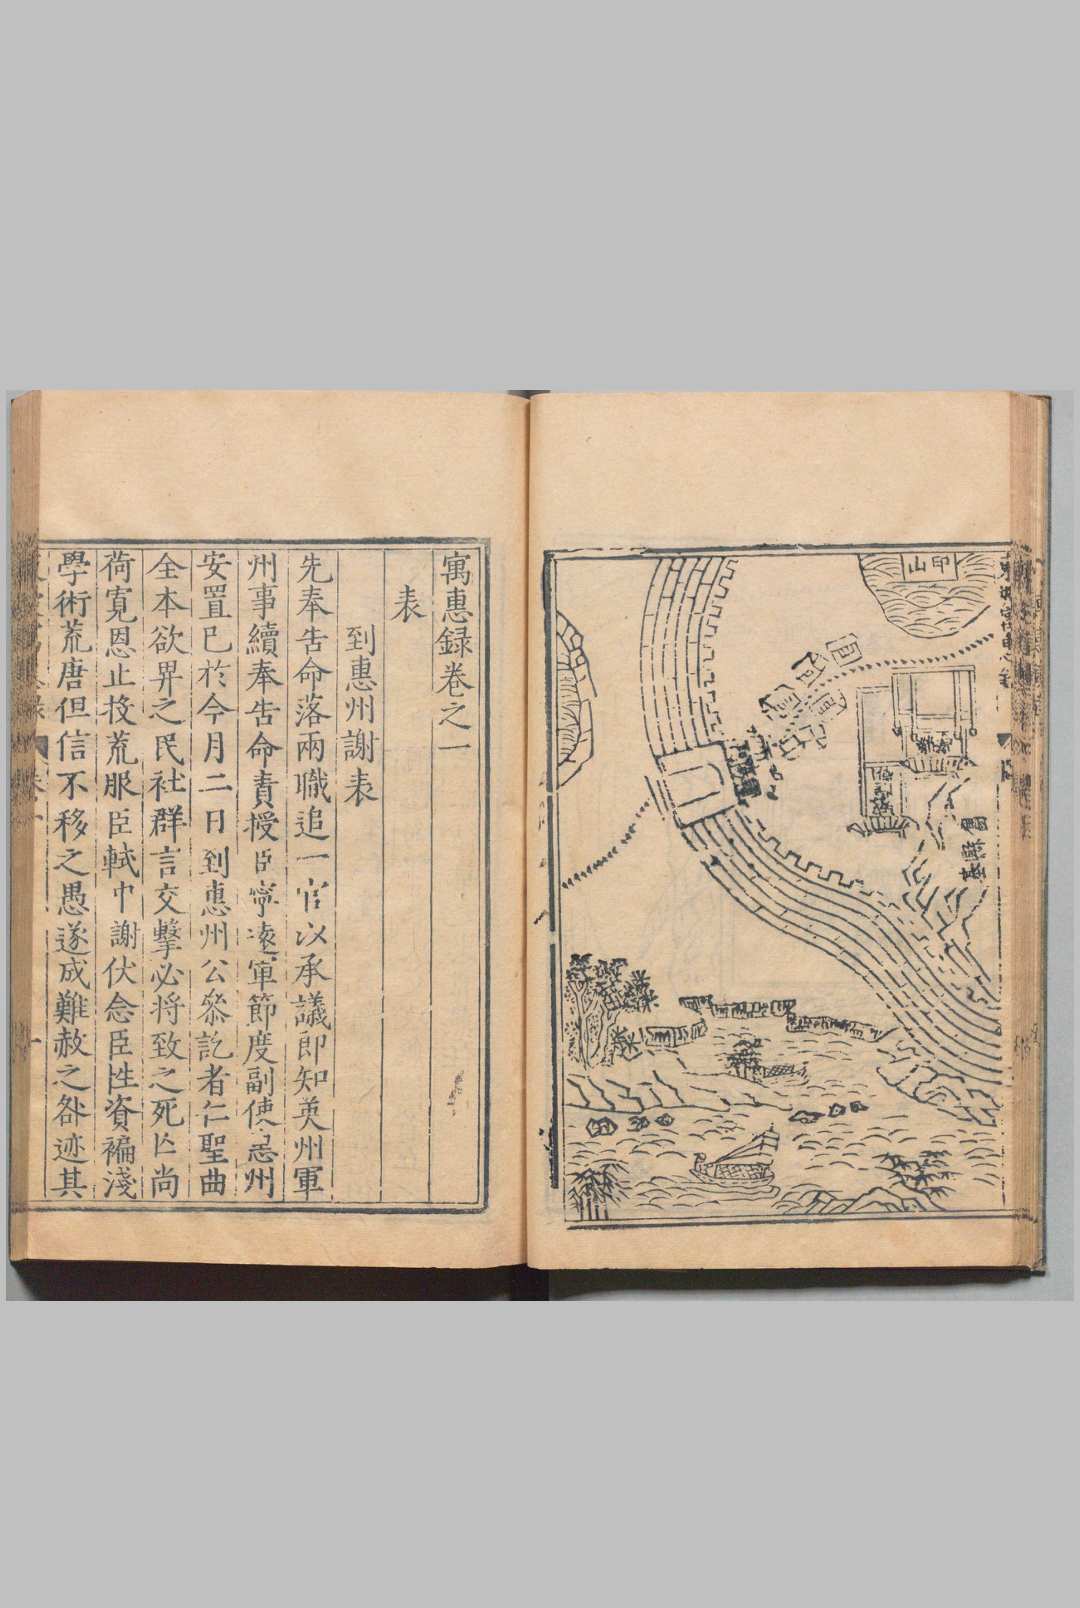 印山
寓惠録卷之一
表
到惠州謝表
先奉告命落兩職追一官以承議郎知英州軍
州事續奉告命責授臣寧遠軍節度副使惠州
安置已於今月二日到惠州公叅訖者仁聖曲
全本欲畀之民社群言交擊必将致之死亡尚
荷寛恩止投荒服臣軾中謝伏念臣性資褊淺
學術荒唐但信不移之愚遂成難赦之咎迹其